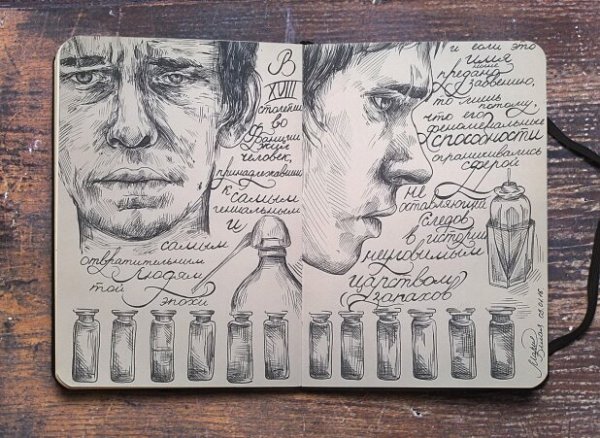 В
XVIII
столетии
во
Франции
жил
человек,
принадлежавший
к самым
гениальным
и
самым
отвратительным
людям
той
эпохи
и если это
имя
предано
забвению,
то лишь
потому,
что его
феноменальные
способности
ограничивались
сферой
не
оставляющей
следов
в истории
неуловимым
царством
запахов